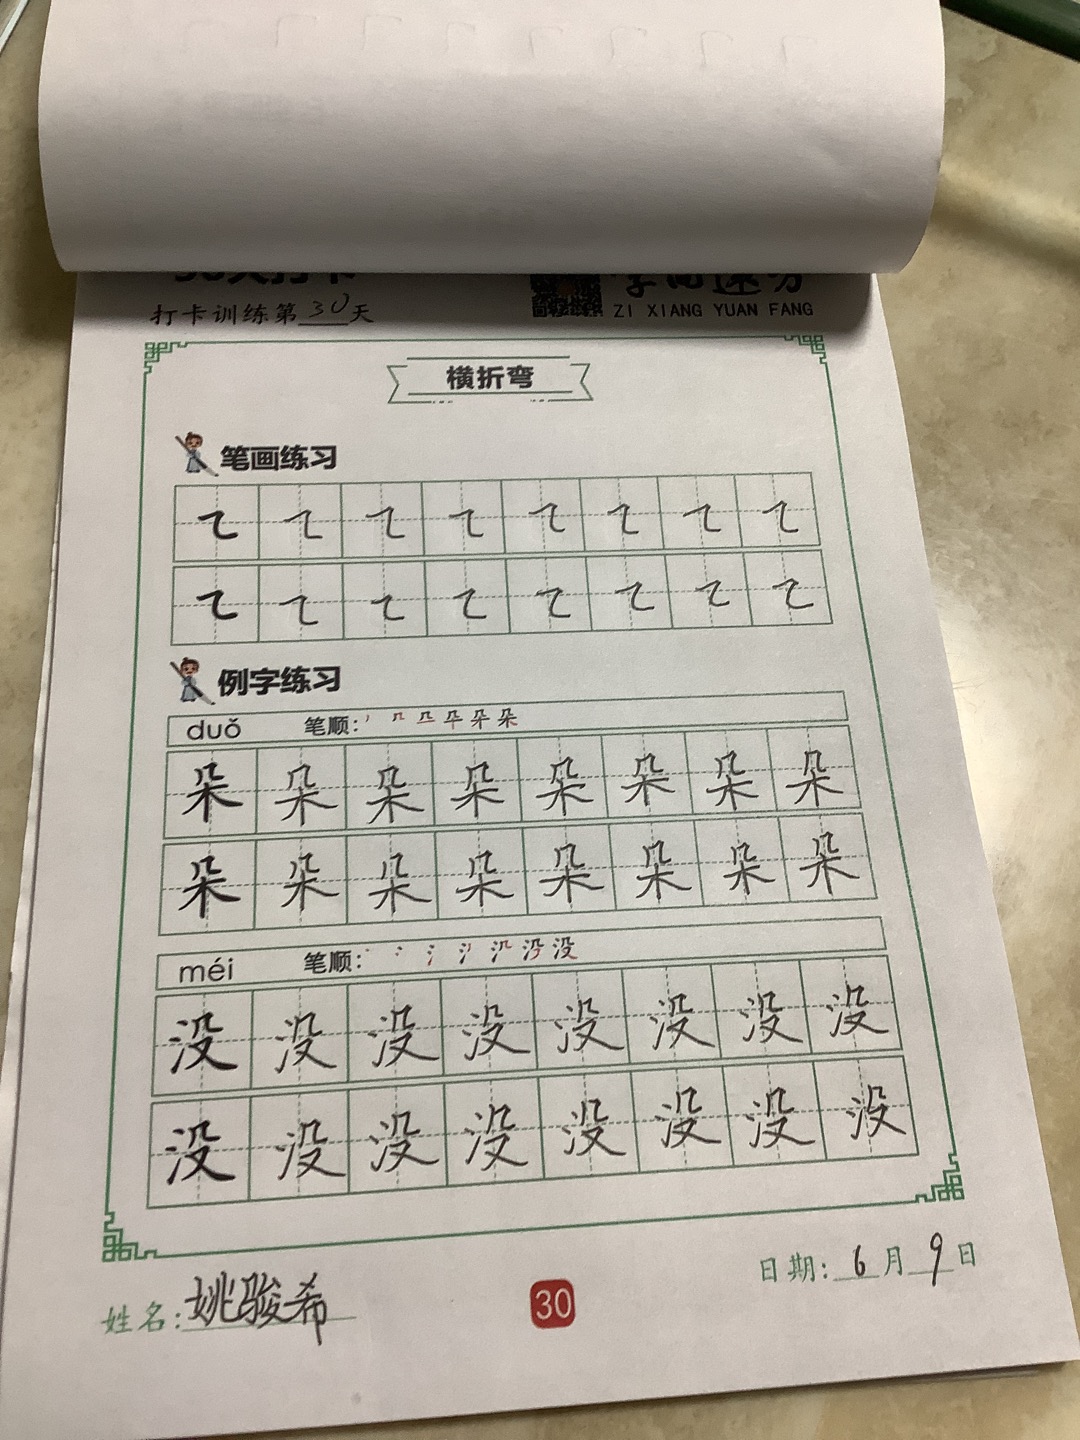 打卡训练第30天
ZI XIANG YUAN FANG
横折弯
笔画练习
㇍ ㇍ ㇍ ㇍ ㇍ ㇍ ㇍ ㇍
㇍ ㇍ ㇍ ㇍ ㇍ ㇍ ㇍ ㇍
例字练习
duǒ 笔顺:
朵 朵 朵 朵 朵 朵 朵 朵
朵 朵 朵 朵 朵 朵 朵 朵
méi 笔顺:
没 没 没 没 没 没 没 没
没 没 没 没 没 没 没 没
日期: 6月9日
姓名: 姚骏希
30